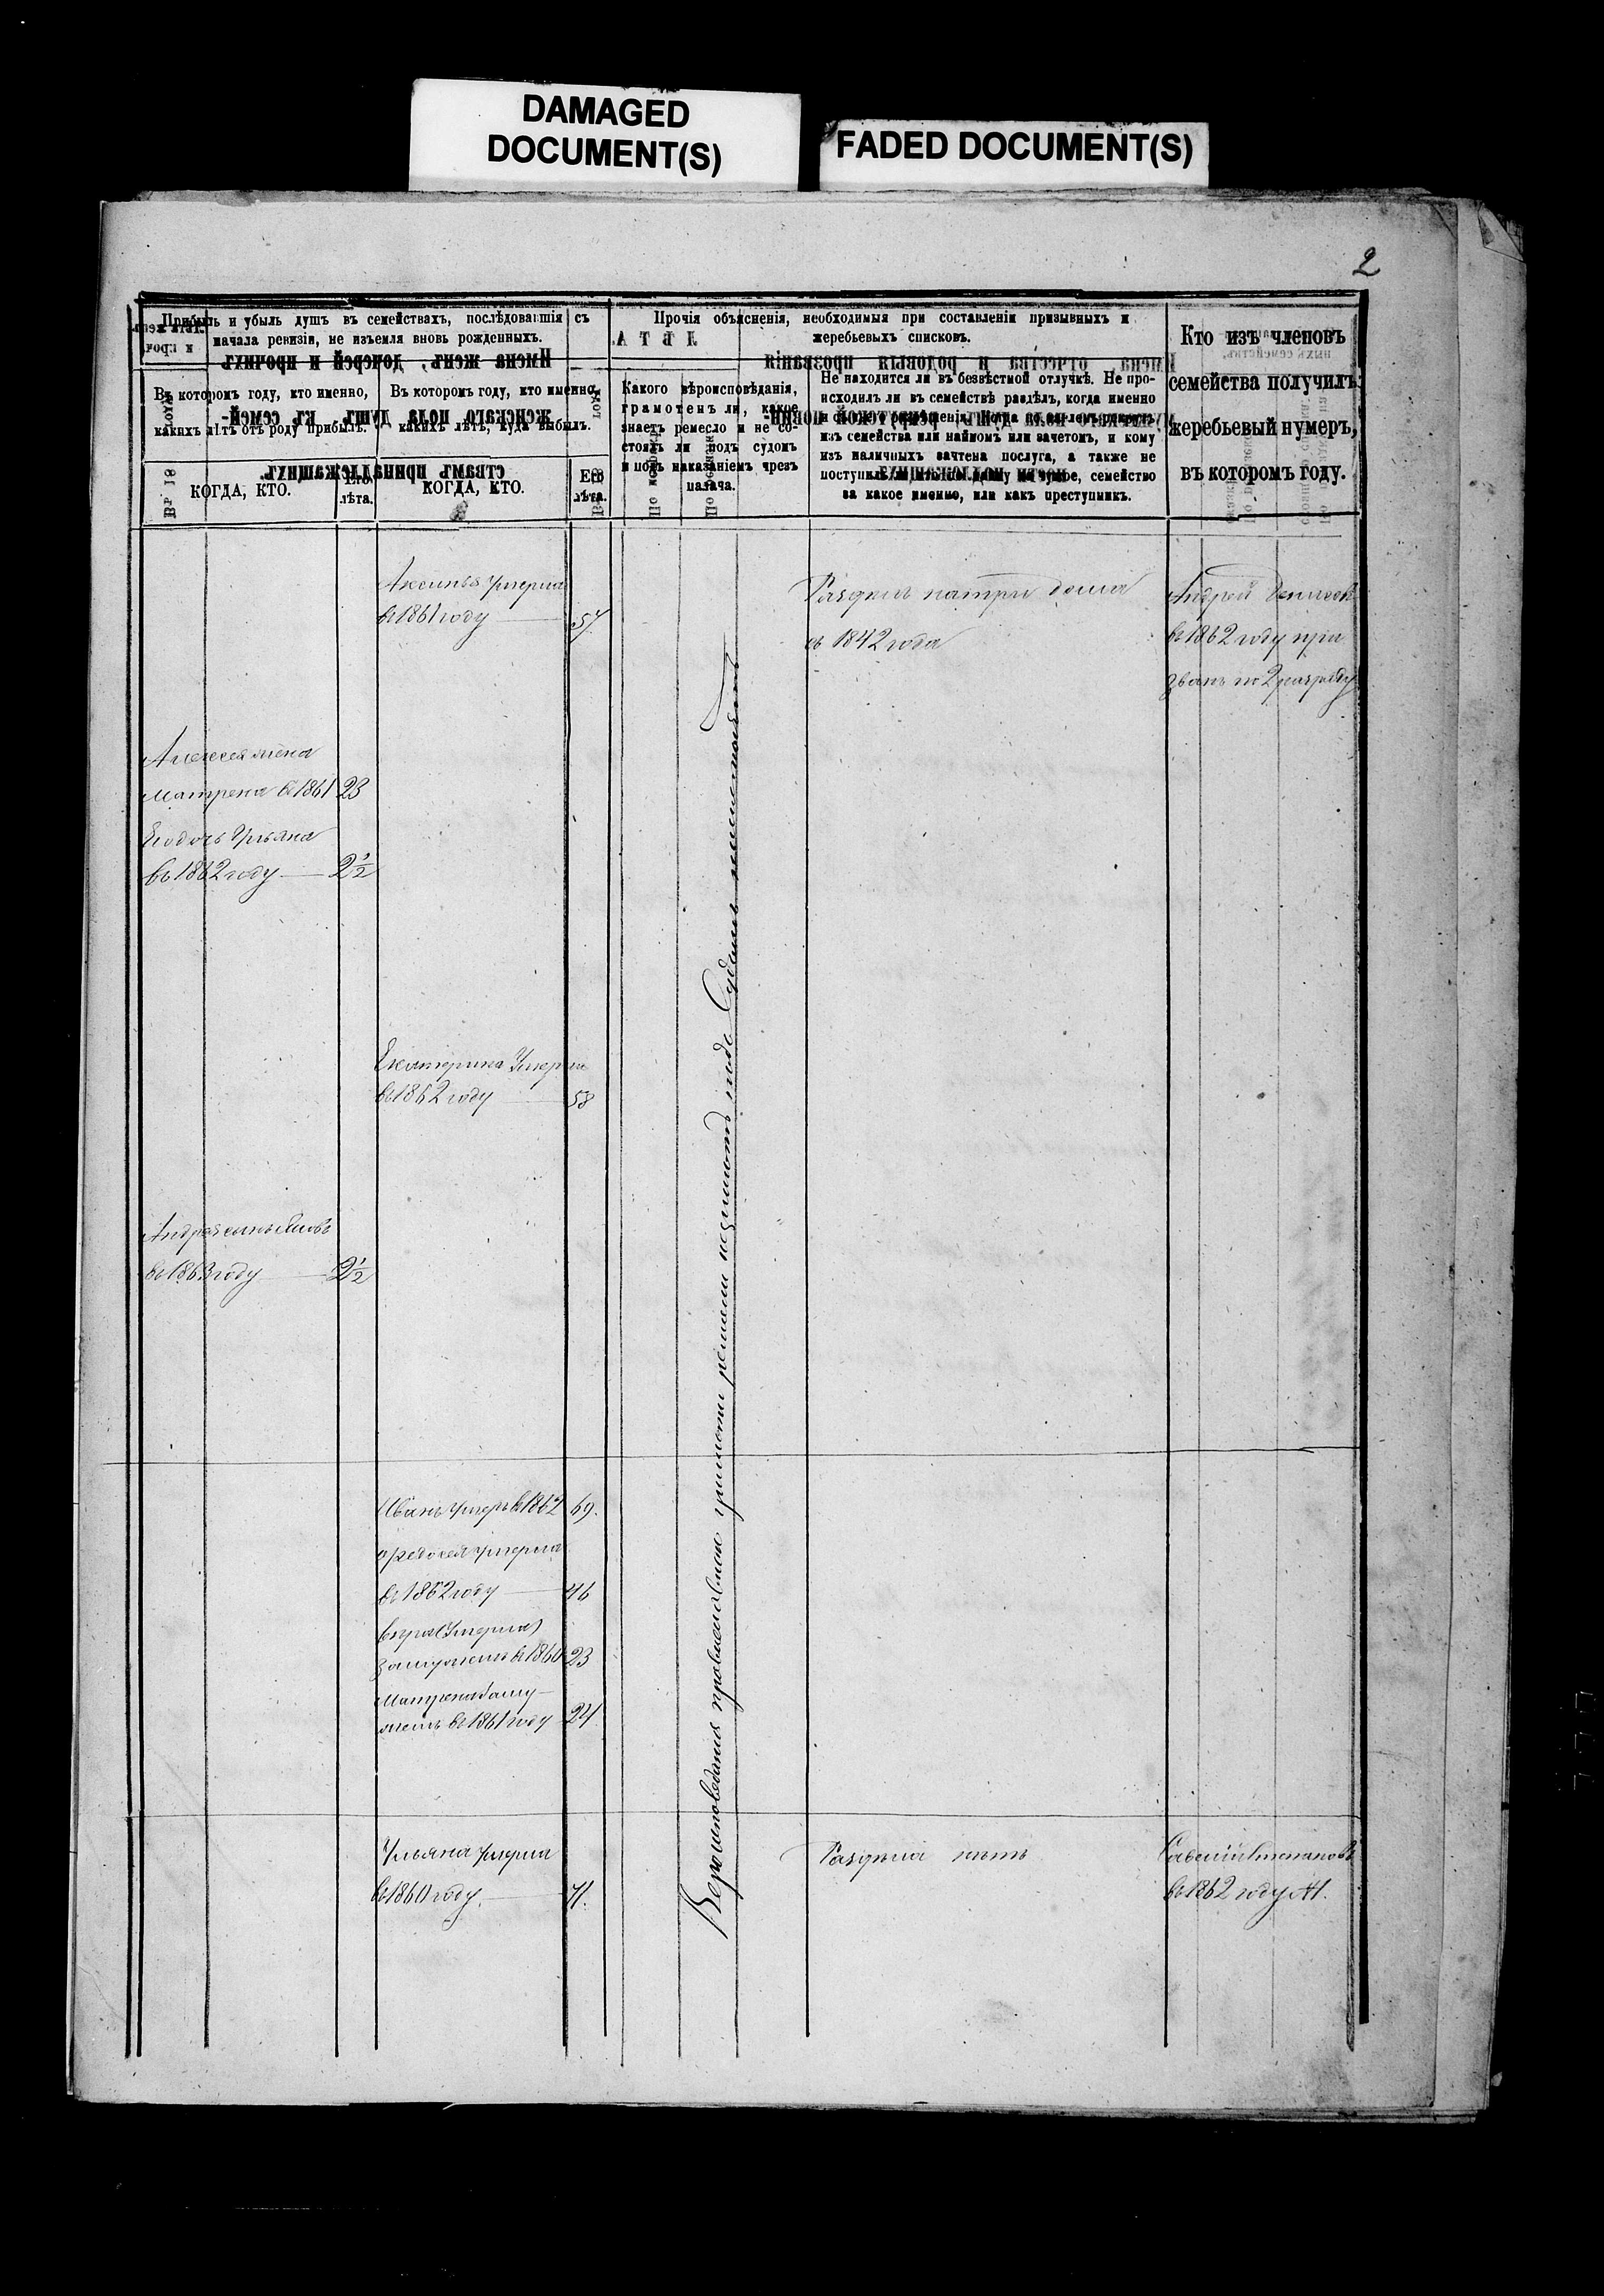 DAMAGED
DOCUMENT(S)
FADED DOCUMENT(S)
2
Прибыль и убыль душъ въ семействахъ, послѣдовавшія съ
начала ревизіи, не изъемля вновь рожденныхъ.
Въ которомъ году, кто именно,
какихъ лѣтъ отъ роду прибылъ.
КОГДА, КТО.
Его
лѣта.
Въ которомъ году, кто именно,
какихъ лѣтъ, куда выбылъ.
КОГДА, КТО.
Его
лѣта.
Прочія объясненія, необходимыя при составленіи призывныхъ и
жеребьевыхъ списковъ.
Какого вѣроисповѣданія,
грамотенъ ли, какое
знаетъ ремесло и не со-
стоялъ ли подъ судомъ
и подъ наказаніемъ чрезъ
палача.
Не находится ли въ безвѣстной отлучкѣ. Не про-
исходилъ ли въ семействѣ раздѣлъ, когда именно
изъ семейства или наймомъ или зачетомъ, и кому
изъ наличныхъ зачтена послуга, а также не
семейство
за какое именно, или какъ преступникъ.
Кто изъ членовъ
семейства получилъ
жеребьевый нумеръ,
въ которомъ году.
Аксинья умерла
въ 1861 году 57
Раздѣлъ натри дома
съ 1842 года
Андрей
въ 1862 году при
званъ по 2 разряду
Алексея жена
Матрена въ 1861 23
дочь Ульяна
въ 1862 году 2½
Екатерина Умерла
въ 1862 году 58
Андрея сынъ
въ 1863 году 2½
Иванъ умеръ въ 1862 69.
Федосея умерла
въ 1862 году 46
Вера (Умерла)
замужемъ въ 1860 23
Матрена Заму-
жемъ въ 1861 году 24
Вероисповедания православнаго грамоти ремесла незнаютъ подъ Судомъ
Ульяна умерла
въ 1860 году. 71.
Раздѣла нѣтъ
Савелій Степановъ
въ 1862 году №1.